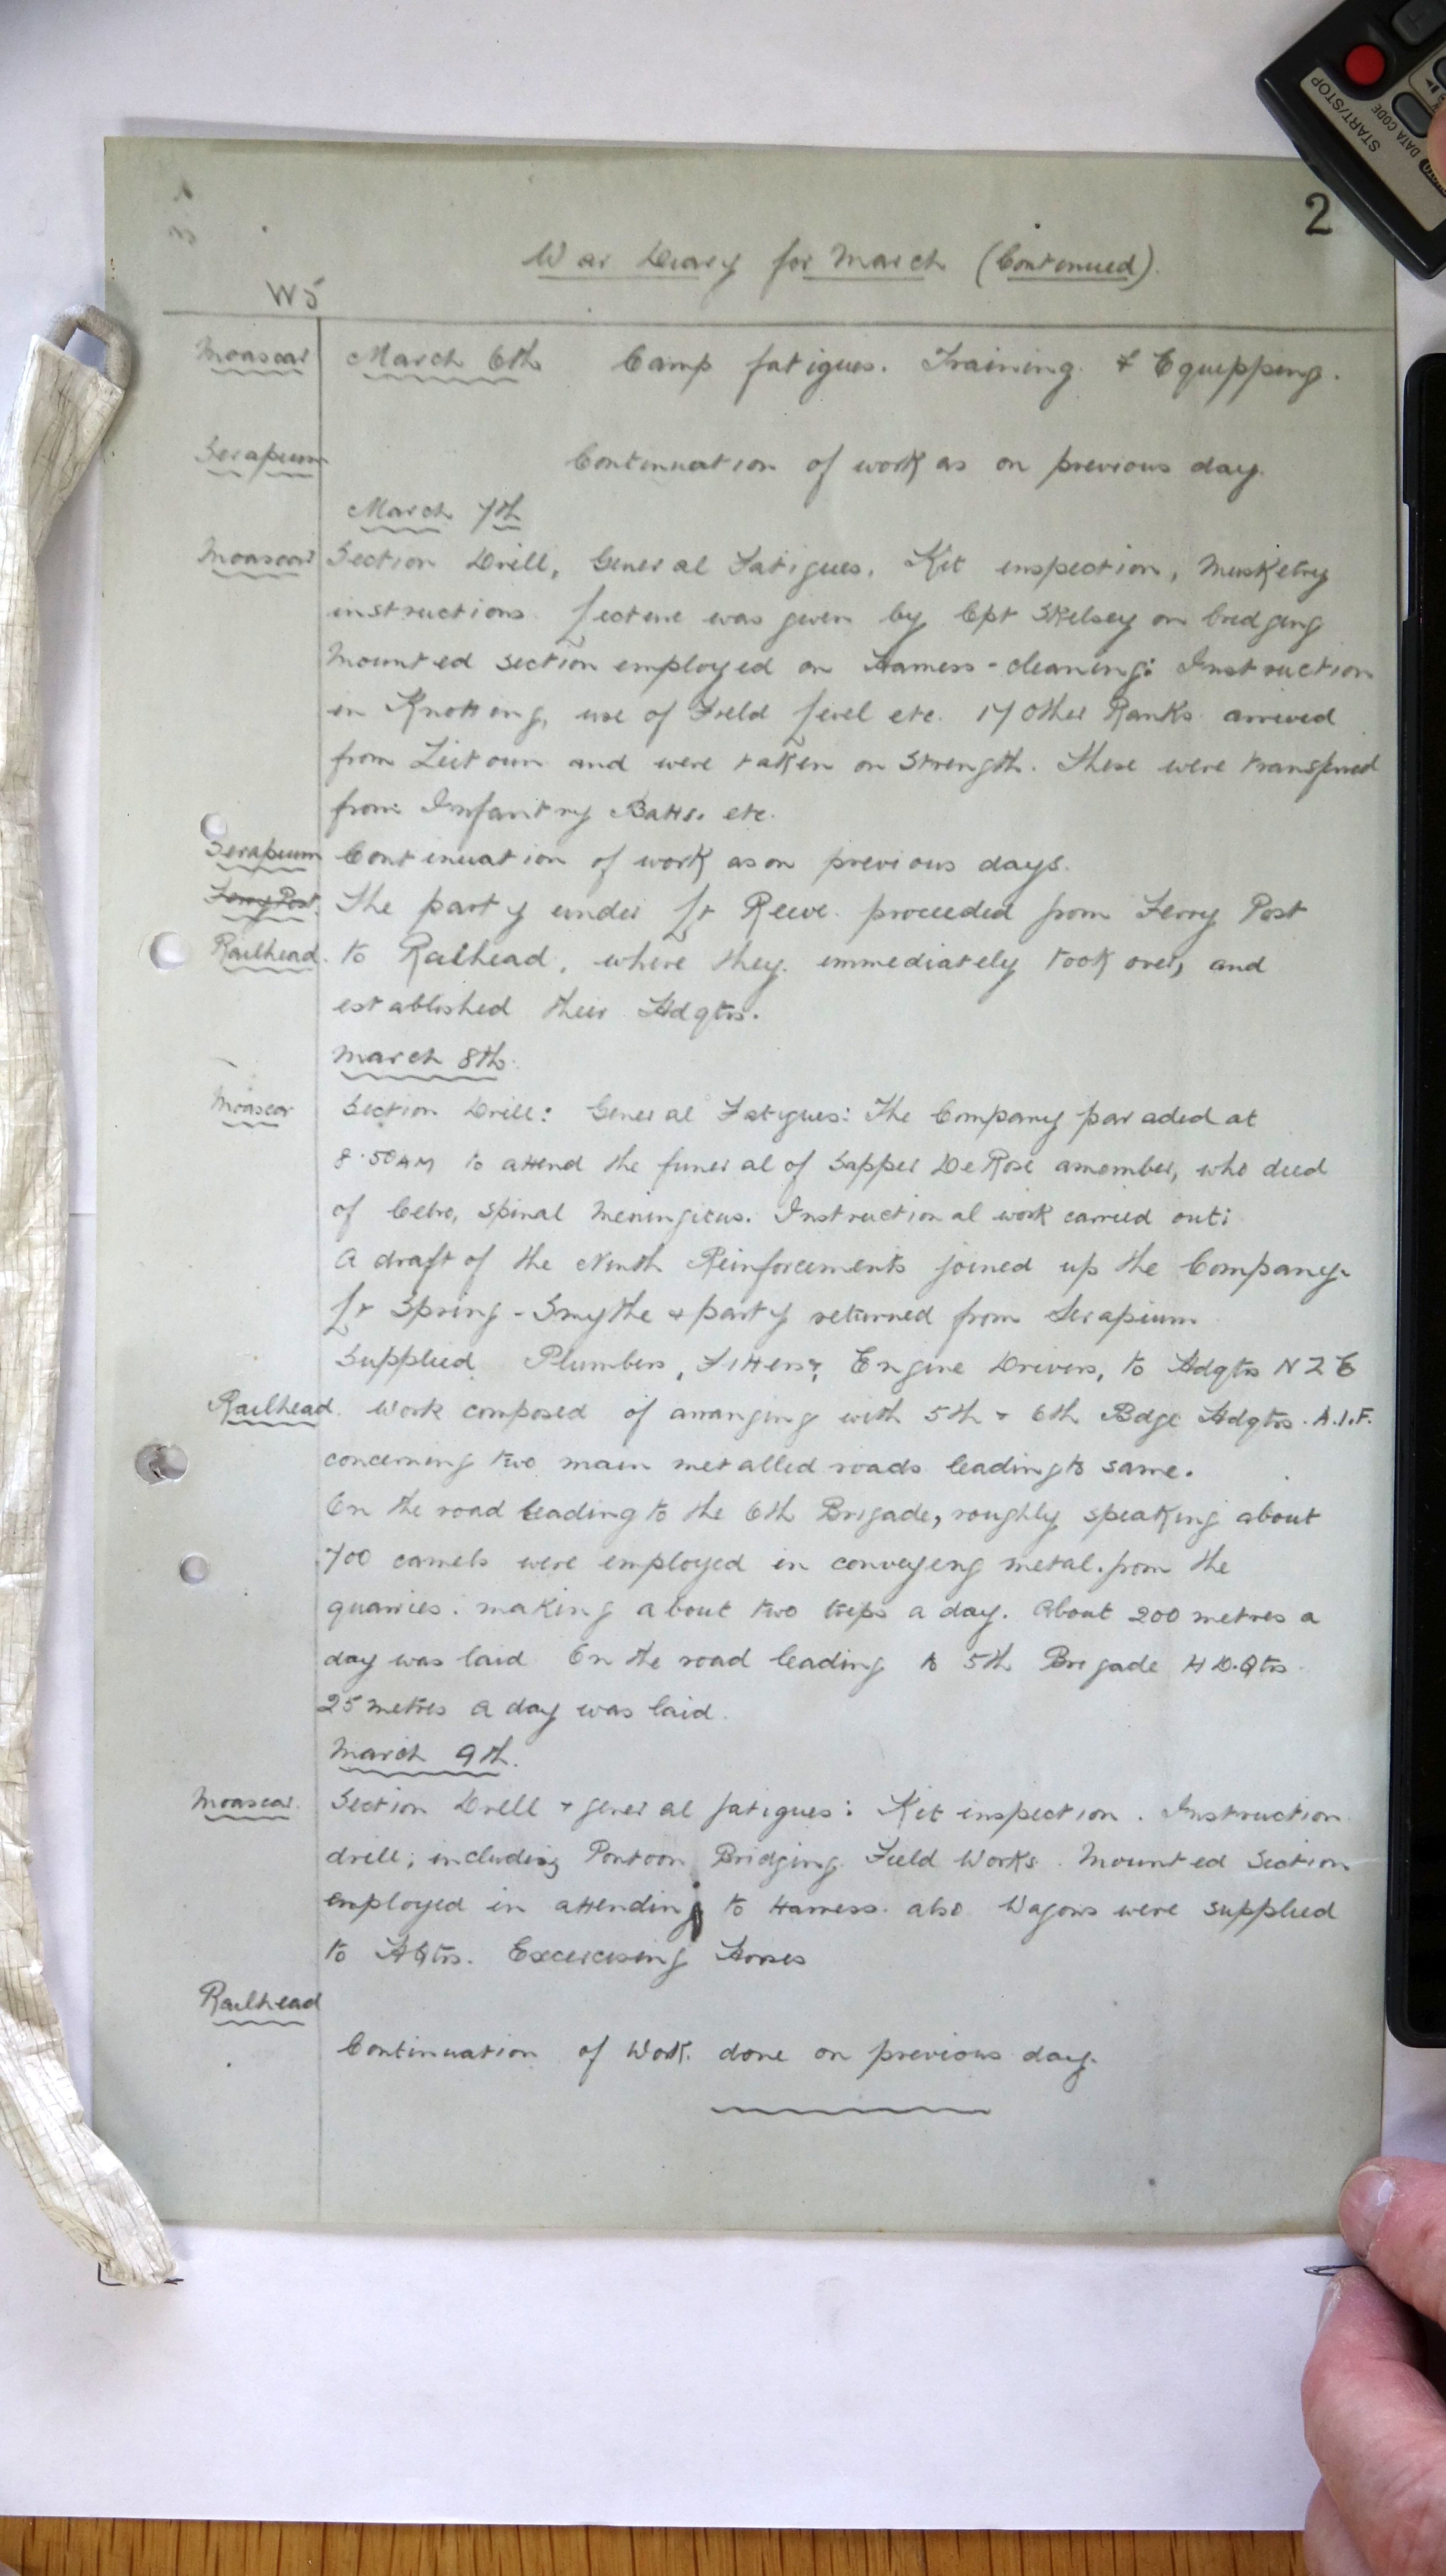 2
War Diary for March (Continued).
W5
Moascar March 6th Camp fatigues. Training & Equipping.
Serapeum Continuation of work as on previous day.
March 7th
Moascar Section Drill, General Fatigues. Kit inspection, Musketry
instructions. Lecture was given by Cpt Skelsey on bridging
Mounted section employed on Harness-cleaning: Instruction
in Knotting, use of Field Level etc. 17 Other Ranks arrived
from Zeitoun and were taken on Strength. These were transferred
from Infantry Batts. etc.
Serapeum Continuation of work as on previous days.
Ferry Post. The party under Lt Reeve proceeded from Ferry Post
Railhead. to Railhead, where they immediately took over, and
established their Hdqtrs.
March 8th.
Moascar Section Drill: General Fatigues: The Company paraded at
8.50 AM to attend the funeral of Sapper De Rose a member, who died
of Cebro, spinal Meningitus. Instructional work carried out:
A draft of the Ninth Reinforcements joined up the Company.
Lt Spring-Smythe & party returned from Serapium
Supplied Plumbers, Fitters, Engine Drivers, to Hdqtrs N Z E
Railhead. Work composed of arranging with 5th & 6th Bdge Hdqtrs. A.I.F.
concerning two main metalled roads leading to same.
On the road leading to the 6th Brigade, roughly speaking about
700 camels were employed in conveying metal from the
quarries. making about two trips a day. About 200 metres a
day was laid On the road leading to 5th Brigade H D. Qtrs.
25 metres a day was laid.
March 9th.
Moascar. Section Drill & general fatigues: Kit inspection. Instruction
drill; including Pontoon Bridging. Field Works. Mounted Section
employed in attending to Harness. also Wagons were supplied
to HQtrs. Excercising Horses
Railhead
Continuation of Work. done on previous day.
START/STOP
DATA CODE